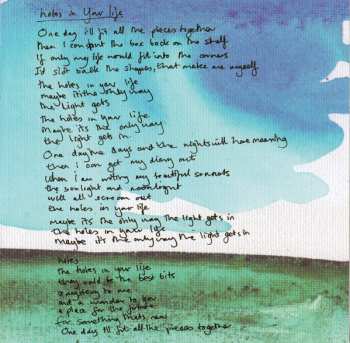 holes in your life
One day I'll fit all the pieces together
then I can put the box back on the shelf
If only my life would fit into the corners
I'd slot back the shapes, that make me myself
The holes in your life
maybe it's the only way
the light gets
The holes in your life
Maybe it's the only way
the light gets in
One day the days and the nights will have meaning
then I can get my diary out
when I am writing my beautiful sonnets
the sunlight and moonlight
will all scream out
the holes in your life
maybe it's the only way the light gets in
The holes in your life
Maybe it's the only way the light gets in
holes
the holes in your life
they add to the best bits
a mystery to me
and a wonder to you
a place for the
for something that's new
One day I'll fit all the pieces together